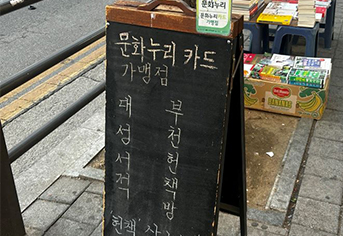 문화누리
카드
가맹점
문화누리 카드
가맹점
대성서적
부천헌책방
헌책